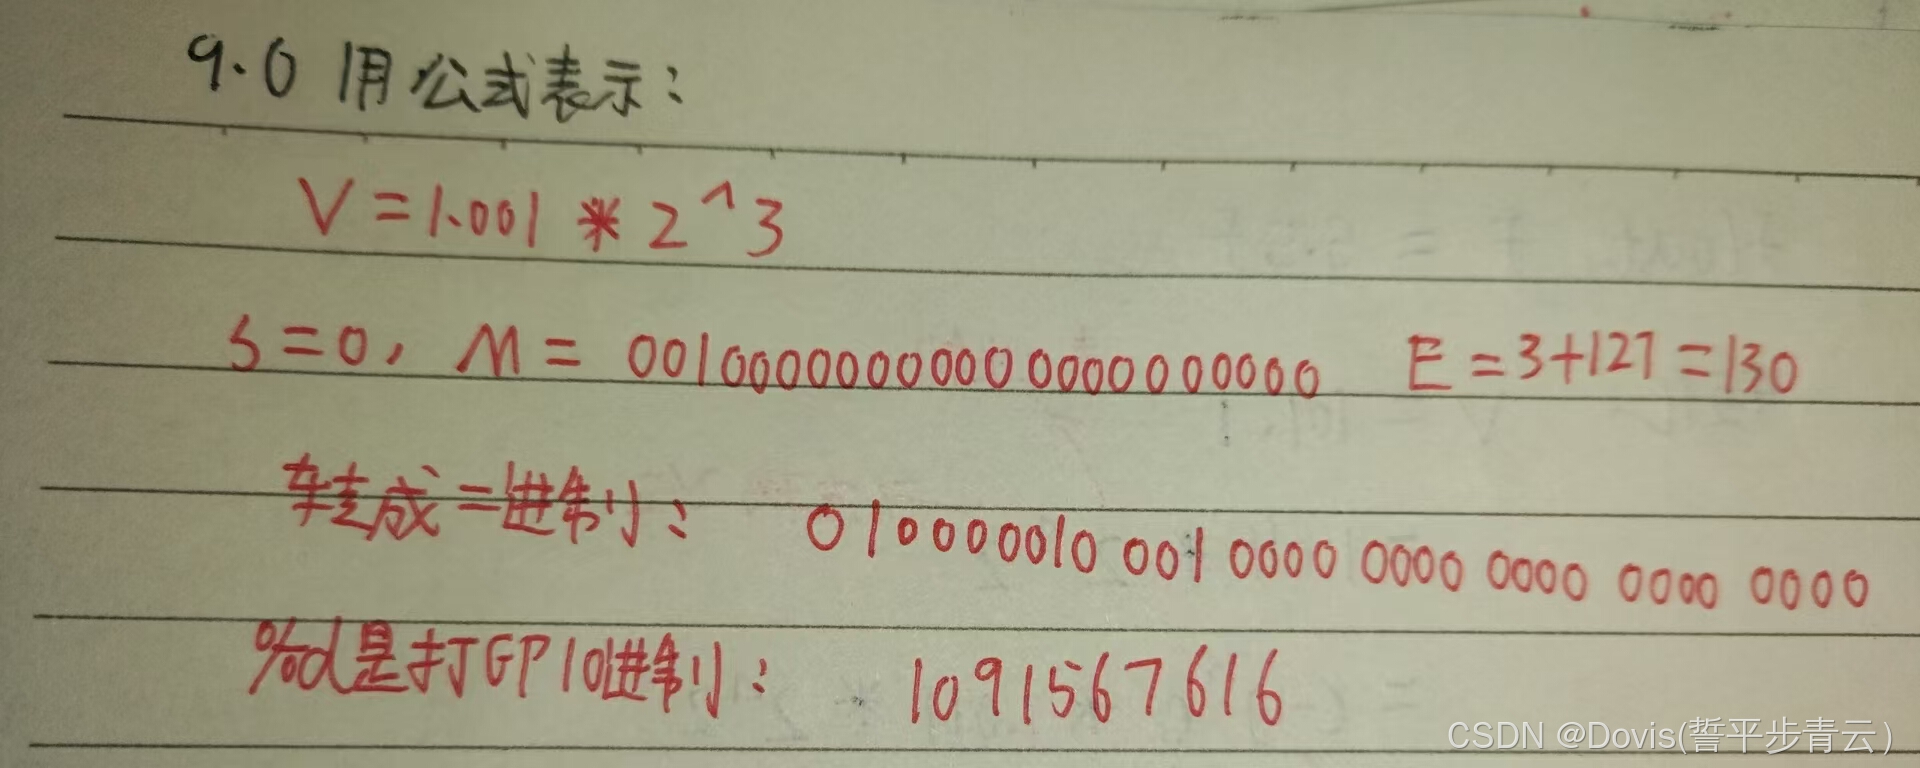 9.0 用公式表示：
V=1.001 * 2^3
S=0, M= 00100000000000000000000 E=3+127=130
转成二进制： 010000010 001 0000 0000 0000 0000 0000
%d是打印10进制： 1091567616
CSDN @Dovis(誓平步青云)